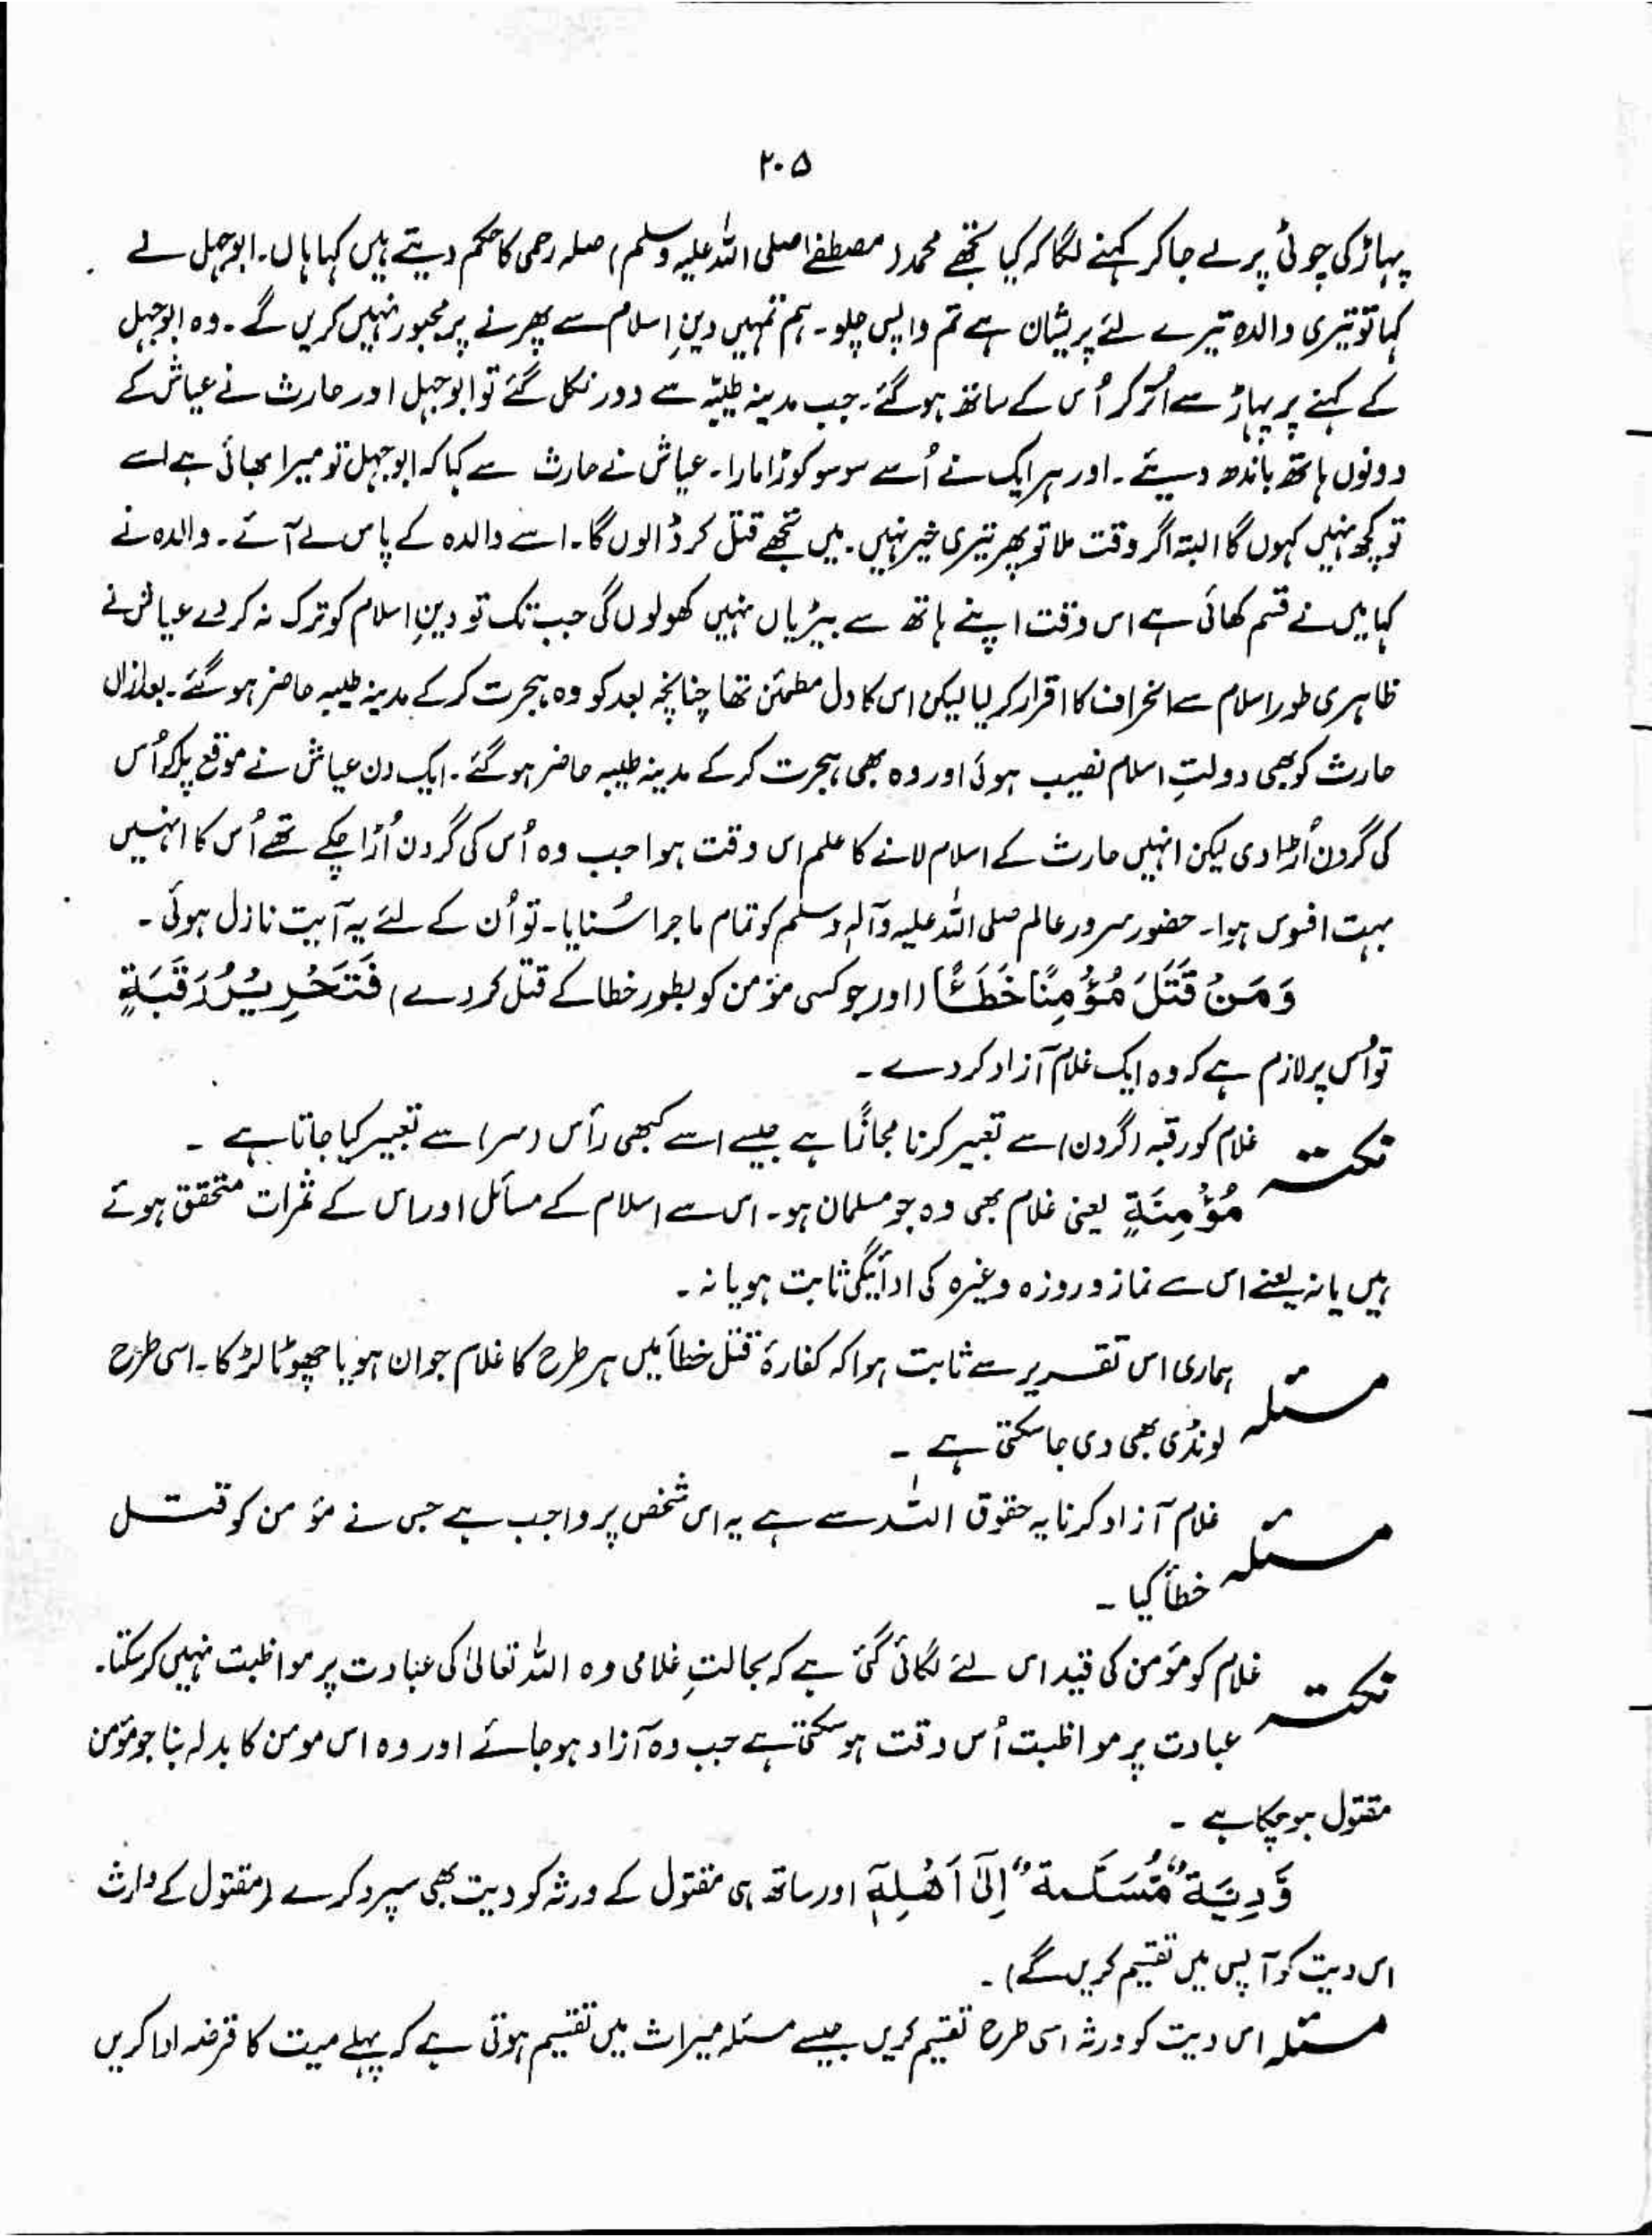 ۲۰۵
پہاڑ کی چوٹی پر لے جا کر کہنے لگا کہ کیا تجھے محمد (مصطفےٰ صلی اللہ علیہ وسلم) صلہ رحمی کا حکم دیتے ہیں کہا ہاں۔ ابوجہل نے
کہا تو تیری والدہ تیرے لئے پریشان ہے تم واپس چلو۔ ہم تمہیں دینِ اسلام سے پھرنے پر مجبور نہیں کریں گے۔ وہ ابوجہل
کے کہنے پر پہاڑ سے اُتر کر اُس کے ساتھ ہو گئے۔ جب مدینہ طیبّہ سے دور نکل گئے تو ابوجہل اور حارث نے عیاش کے
دونوں ہاتھ باندھ دیئے۔ اور ہر ایک نے اُسے سو سو کوڑا مارا۔ عیاش نے حارث سے کہا کہ ابوجہل تو میرا بھائی ہے اسے
تو کچھ نہیں کہوں گا البتہ اگر وقت ملا تو پھر تیری خیر نہیں۔ میں تجھے قتل کر ڈالوں گا۔ اسے والدہ کے پاس لے آئے۔ والدہ نے
کہا میں نے قسم کھائی ہے اس وقت اپنے ہاتھ سے بیڑیاں نہیں کھولوں گی جب تک تو دینِ اسلام کو ترک نہ کر دے عیاش نے
ظاہری طور اسلام سے انحراف کا اقرار کر لیا لیکن اس کا دل مطمئن تھا چنانچہ بعد کو وہ ہجرت کر کے مدینہ طیبہ حاضر ہو گئے۔ بعد ازاں
حارث کو بھی دولتِ اسلام نصیب ہوئی اور وہ بھی ہجرت کر کے مدینہ طیبہ حاضر ہو گئے۔ ایک دن عیاش نے موقع پا کر اُس
کی گردن اُڑا دی لیکن انہیں حارث کے اسلام لانے کا علم اس وقت ہوا جب وہ اُس کی گردن اُڑا چکے تھے اُس کا انہیں
بہت افسوس ہوا۔ حضور سرور عالم صلی اللہ علیہ وآلہٖ وسلم کو تمام ماجرا سُنایا۔ تو اُن کے لئے یہ آیت نازل ہوئی۔
وَمَنْ قَتَلَ مُؤْمِنًا خَطَـًٔا (اور جو کسی مؤمن کو بطور خطا کے قتل کر دے) فَتَحْرِيْرُ رَقَبَةٍ
تو اُس پر لازم ہے کہ وہ ایک غلام آزاد کر دے۔
نکتہ غلام کو رقبہ (گردن) سے تعبیر کرنا مجازًا ہے جیسے اسے کبھی رأس (سر) سے تعبیر کیا جاتا ہے۔
مُؤْمِنَةٍ یعنی غلام بھی وہ جو مسلمان ہو۔ اس سے اسلام کے مسائل اور اس کے ثمرات متحقق ہوئے
ہیں یا نہ یعنے اس سے نماز و روزہ وغیرہ کی ادائیگی ثابت ہو یا نہ۔
مسئلہ ہماری اس تقریر سے ثابت ہوا کہ کفارۂ قتل خطأ میں ہر طرح کا غلام جوان ہو یا چھوٹا لڑکا۔ اسی طرح
لونڈی بھی دی جا سکتی ہے۔
مسئلہ غلام آزاد کرنا یہ حقوق اللہ سے ہے یہ اس شخص پر واجب ہے جس نے مؤمن کو قتل
خطأ کیا۔
نکتہ غلام کو مؤمن کی قید اس لئے لگائی گئی ہے کہ بحالتِ غلامی وہ اللہ تعالیٰ کی عبادت پر مواظبت نہیں کر سکتا۔
عبادت پر مواظبت اُس وقت ہو سکتی ہے جب وہ آزاد ہو جائے اور وہ اس مومن کا بدلہ بنا جو مؤمن
مقتول ہو چکا ہے۔
وَّدِيَةٌ مُّسَلَّمَةٌ اِلٰٓى اَهْلِهٖٓ اور ساتھ ہی مقتول کے ورثہ کو دیت بھی سپرد کرے (مقتول کے وارث
اس دیت کو آپس میں تقسیم کریں گے)۔
مسئلہ اس دیت کو ورثہ اسی طرح تقسیم کریں جیسے مسئلہ میراث میں تقسیم ہوتی ہے کہ پہلے میت کا قرضہ ادا کریں